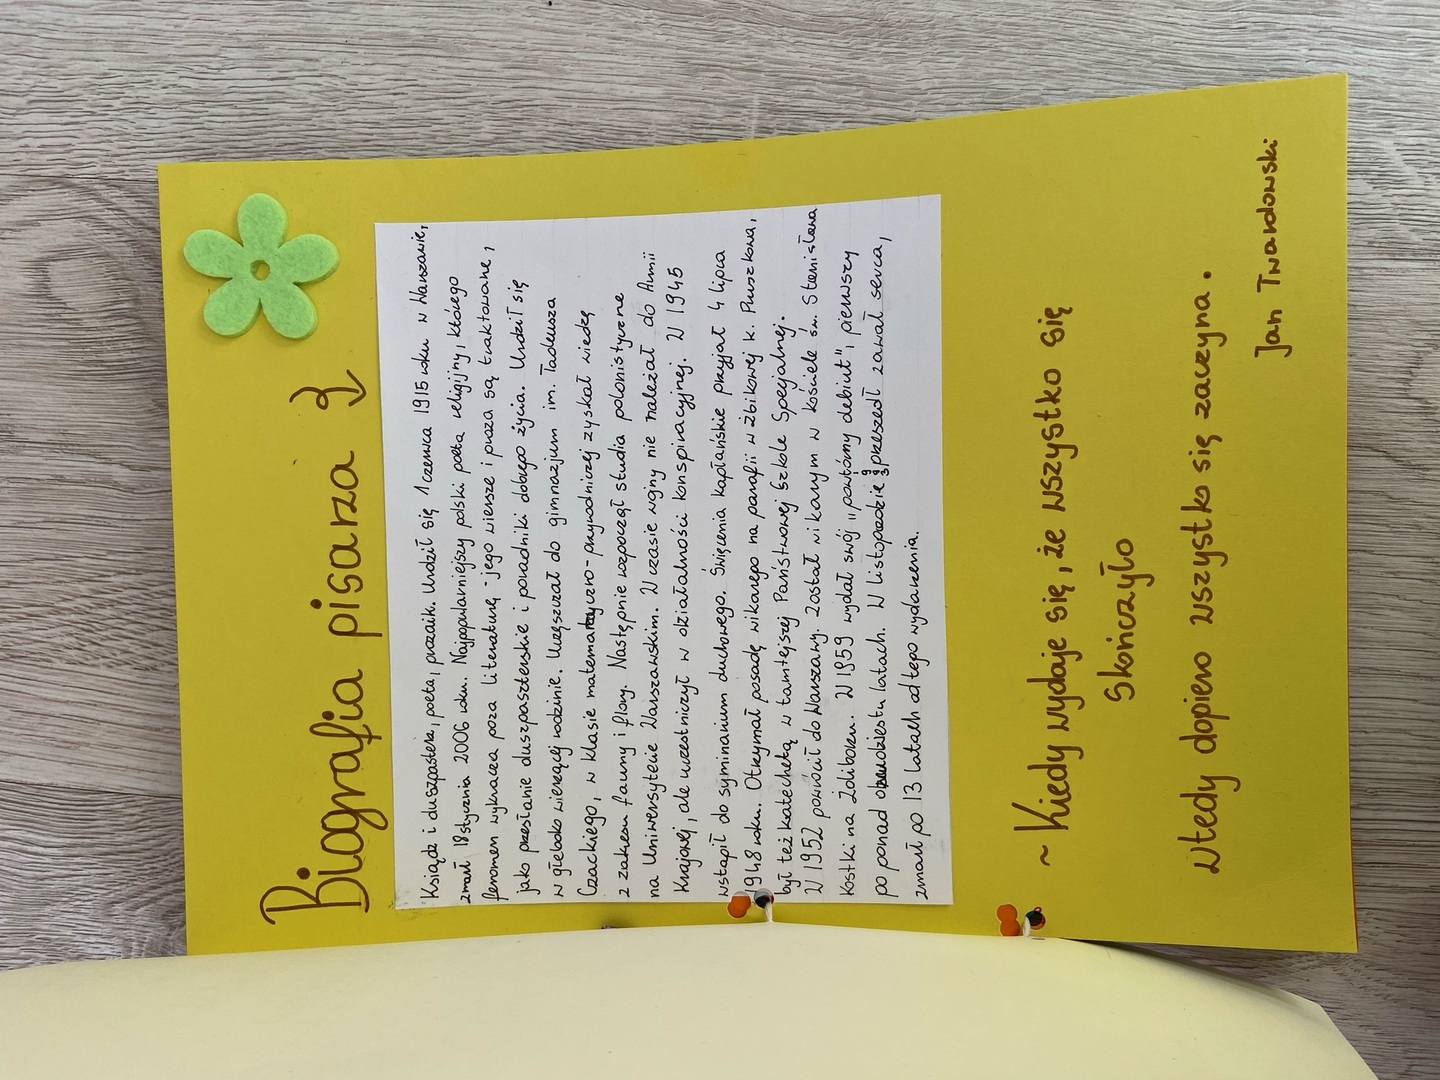 Biografia pisarza
Ksiądz i duszpasterz, poeta, prozaik. Urdził się 1 czerwca 1915 roku w Warszawie,
zmarł 18 stycznia 2006 roku. Najpopularniejszy polski poeta religijny, którego
fenomen wykracza poza literaturę - jego wiersze i proza są traktowane,
jako przesłanie duszpasterskie i poradniki dobrego życia. Urdził się
w głęboko wierzącej rodzinie. Uczęszczał do gimnazjum im. Tadeusza
Czackiego, w klasie matematyczno - przyrodniczej zyskał wiedzę
z zakresu fauny i flory. Następnie rozpoczął studia polonistyczne
na Uniwersytecie Warszawskim. W czasie wojny nie należał do Armii
Krajowej, ale uczestniczył w działalności konspiracyjnej. W 1945
wstąpił do syminarium duchowego. Święcenia kapłańskie przyjął 4 lipca
1948 roku. Otrzymał posadę wikarego na parafii w Żbikowej k. Pruszkowa,
był też katechetą w tamtejszej Państwowej Szkole Specjalnej.
W 1952 powrócił do Warszawy. Został wikarym w kościele św. Stanisława
Kostki na Żoliborzu. W 1959 wydał swój "powtórny debiut", pierwszy
po ponad dwudziestu latach. W listopadzie przeszedł zawał serca,
zmarł po 13 latach od tego wydarzenia.
~ Kiedy wydaje się, że wszystko się
skończyło
wtedy dopiero wszystko się zaczyna.
Jan Twardowski